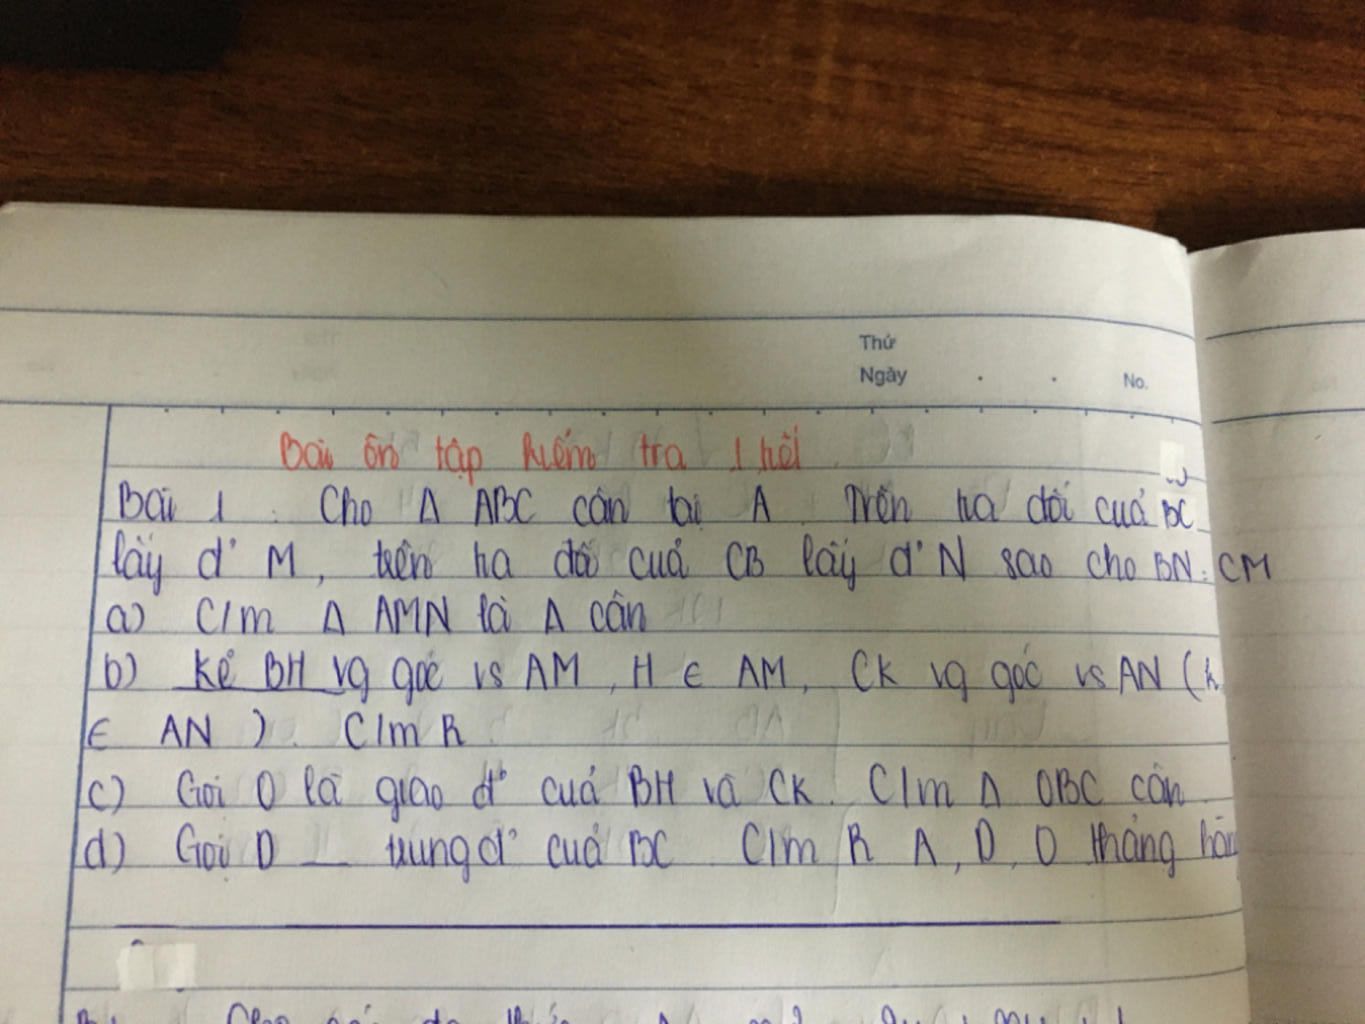 Thứ
Ngày . . No.
Bài ôn tập kiểm tra 1 hồi
Bài 1 : Cho Δ ABC cân tại A. Trên tia đối của BC
lấy đ' M, trên tia đối của CB lấy đ' N sao cho BN = CM
a) C/m Δ AMN là Δ cân
b) Kẻ BH vg góc vs AM, H ∈ AM, CK vg góc vs AN (K
∈ AN ). C/m R
c) Gọi O là giao đ' của BH và CK. C/m Δ OBC cân.
d) Gọi D __ trung đ' của BC. C/m R A, D, O thẳng hàng